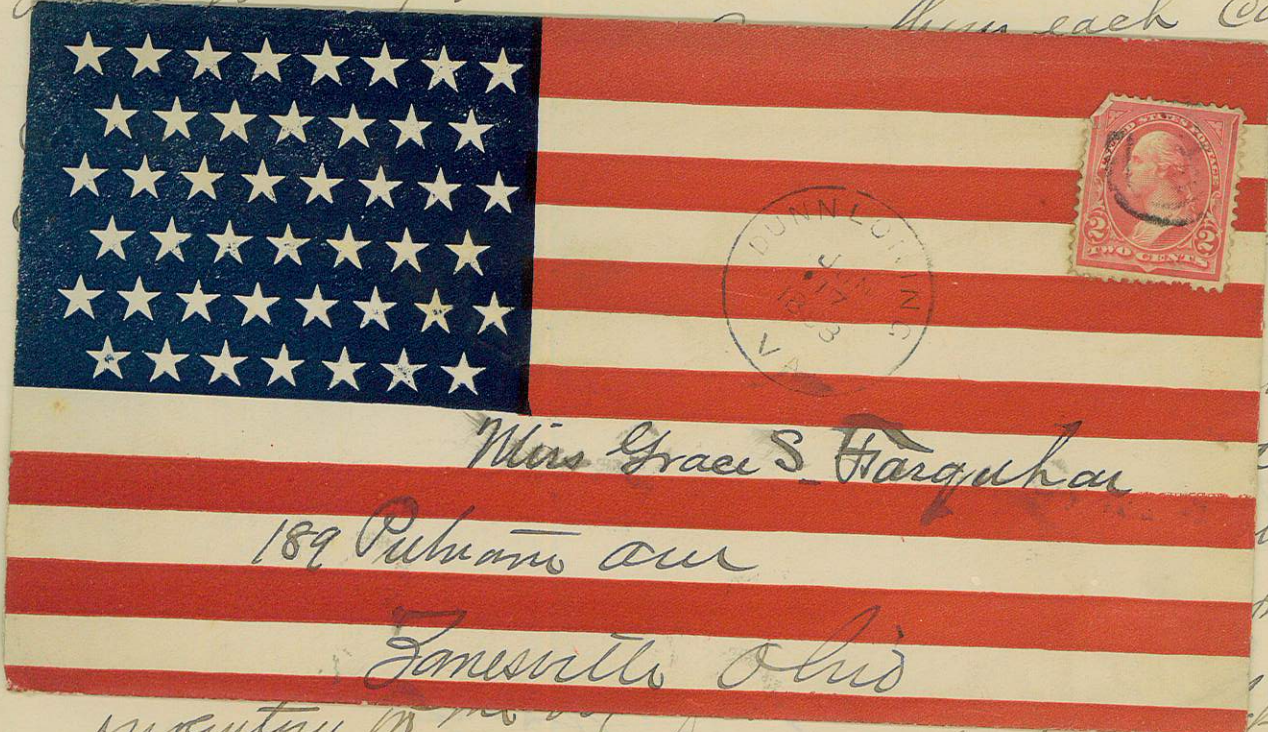 them each
UNITED STATES POSTAGE
2 2
TWO CENTS
DUNN LORING
JUN
17
VA
Miss Grace S. Farquhar
189 Putnam Ave
Zanesville Ohio